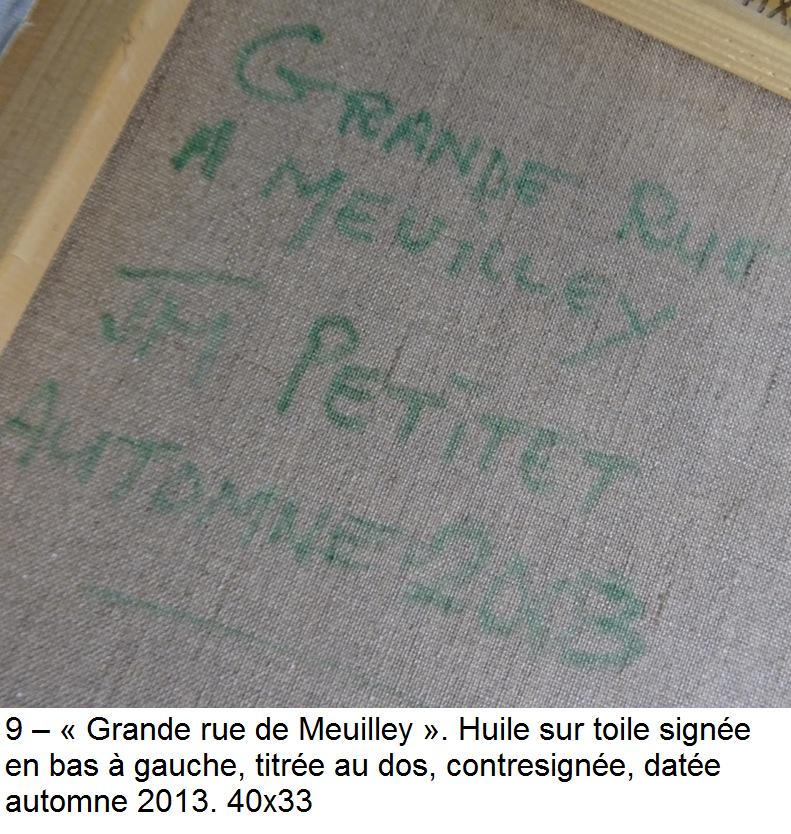 GRANDE RUE
A MEUILLEY
JM PETITET
AUTOMNE 2013
9 – « Grande rue de Meuilley ». Huile sur toile signée
en bas à gauche, titrée au dos, contresignée, datée
automne 2013. 40x33